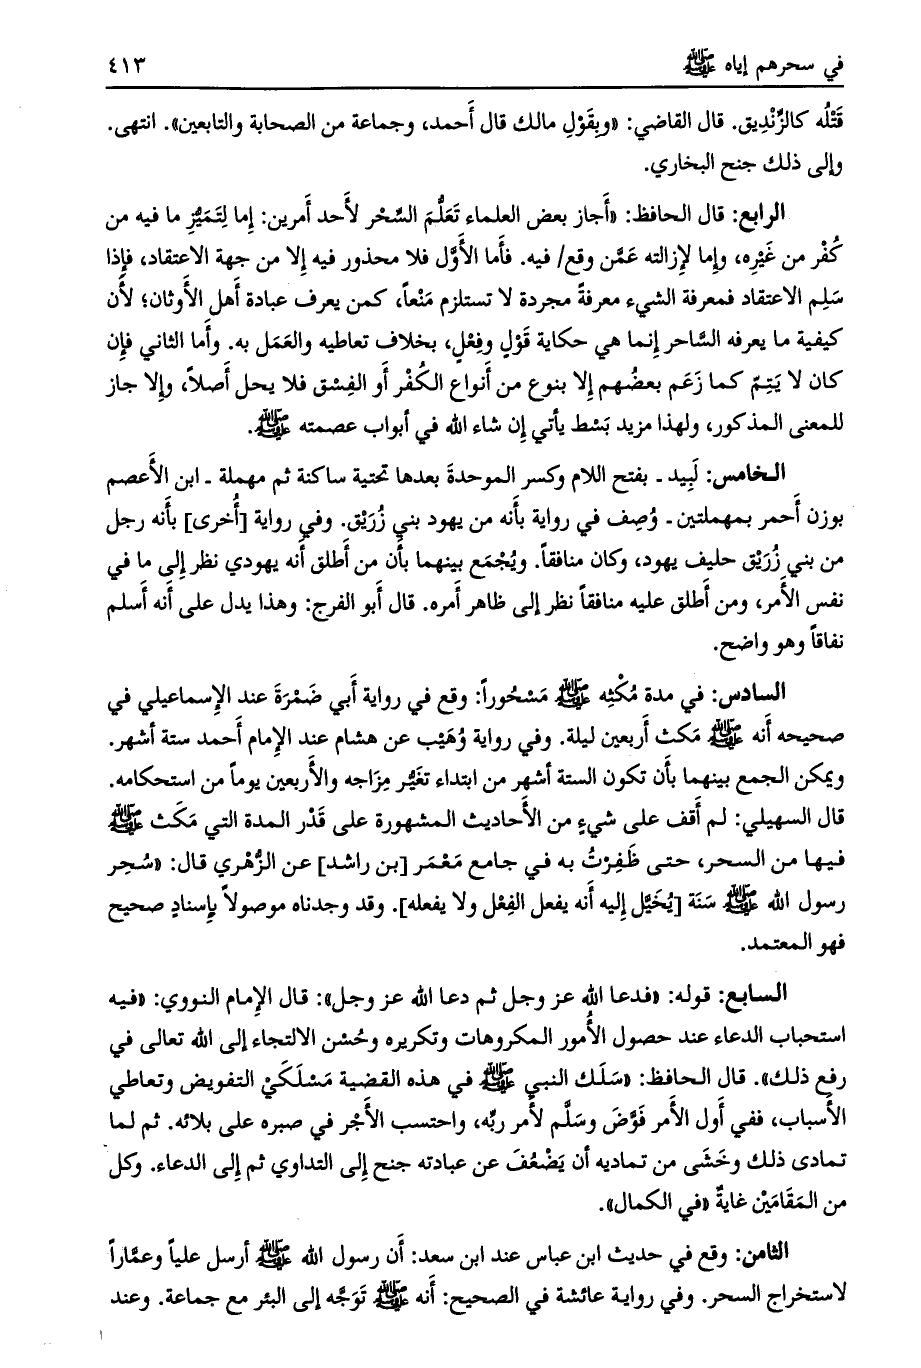 في سحرهم إياه ﷺ ٤١٣
قَتْلُه كالزِّنْدِيق. قال القاضي: «وبِقَوْلِ مالك قال أَحمد، وجماعة من الصحابة والتابعين». انتهى.
وإلى ذلك جنح البخاري.
الرابع: قال الحافظ: «أَجاز بعض العلماء تَعَلُّمَ السِّحْر لأَحد أَمرين: إِما لِتَمَيُّزِ ما فيه من
كُفْر من غَيْرِه، وإما لإِزالته عَمَّن وقع/ فيه. فأما الأَوَّل فلا محذور فيه إِلا من جهة الاعتقاد، فإِذا
سَلِم الاعتقاد فمعرفة الشيء معرفةً مجردة لا تستلزم مَنْعاً، كمن يعرف عبادة أَهل الأَوثان؛ لأَن
كيفية ما يعرفه السَّاحر إِنما هي حكاية قَوْلٍ وفِعْلٍ، بخلاف تعاطيه والعَمَل به. وأَما الثاني فإِن
كان لا يَتِمّ كما زَعَم بعضُهم إِلا بنوع من أَنواع الكُفْر أَو الفِسْق فلا يحل أَصلاً، وإِلا جاز
للمعنى المذكور، ولهذا مزيد بَسْط يأتي إِن شاء الله في أَبواب عصمته ﷺ.
الخامس: لَبِيد ـ بفتح اللام وكسر الموحدة بعدها تحتية ساكنة ثم مهملة ـ ابن الأَعصم
بوزن أَحمر بمهملتين ـ وُصِف في رواية بأَنه من يهود بني زُرَيْق. وفي رواية [أُخرى] بأَنه رجل
من بني زُرَيْق حليف يهود، وكان منافقاً. ويُجْمَع بينهما بأَن من أَطلق أَنه يهودي نظر إِلى ما في
نفس الأَمر، ومن أَطلق عليه منافقاً نظر إِلى ظاهر أمره. قال أَبو الفرج: وهذا يدل على أَنه أَسلم
نفاقاً وهو واضح.
السادس: في مدة مُكْثِه ﷺ مَسْحُوراً: وقع في رواية أَبي ضَمْرَةَ عند الإِسماعيلي في
صحيحه أَنه ﷺ مَكث أَربعين ليلة. وفي رواية وُهَيْب عن هشام عند الإِمام أَحمد ستة أَشهر.
ويمكن الجمع بينهما بأن تكون الستة أشهر من ابتداء تغَيُّر مِزَاجه والأَربعين يوماً من استحكامه.
قال السهيلي: لم أَقف على شيءٍ من الأَحاديث المشهورة على قَدْر المدة التي مَكَث ﷺ
فيها من السحر، حتى ظَفِرْتُ به في جامع مَعْمَر [بن راشد] عن الزُّهْري قال: «سُحِر
رسول الله ﷺ سَنَة [يُخَيَّل إِليه أَنه يفعل الفِعْل ولا يفعله]. وقد وجدناه موصولاً بإِسنادٍ صحيح
فهو المعتمد.
السابع: قوله: «فدعا الله عز وجل ثم دعا الله عز وجل»: قال الإِمام النووي: «فيه
استحباب الدعاء عند حصول الأُمور المكروهات وتكريره وحُسْن الالتجاء إِلى الله تعالى في
رفع ذلك». قال الحافظ: «سَلَك النبي ﷺ في هذه القضية مَسْلَكَيْ التفويض وتعاطي
الأَسباب، ففي أَول الأَمر فَوَّضَ وسَلَّم لأَمر ربِّه، واحتسب الأَجْر في صبره على بلائه. ثم لما
تمادى ذلك وخَشَى من تماديه أَن يَضْعُفَ عن عبادته جنح إِلى التداوي ثم إِلى الدعاء. وكل
من المَقَامَيْن غايةٌ «في الكمال».
الثامن: وقع في حديث ابن عباس عند ابن سعد: أَن رسول الله ﷺ أَرسل علياً وعمَّاراً
لاستخراج السحر. وفي رواية عائشة في الصحيح: أَنه ﷺ تَوَجَّه إِلى البئر مع جماعة. وعند